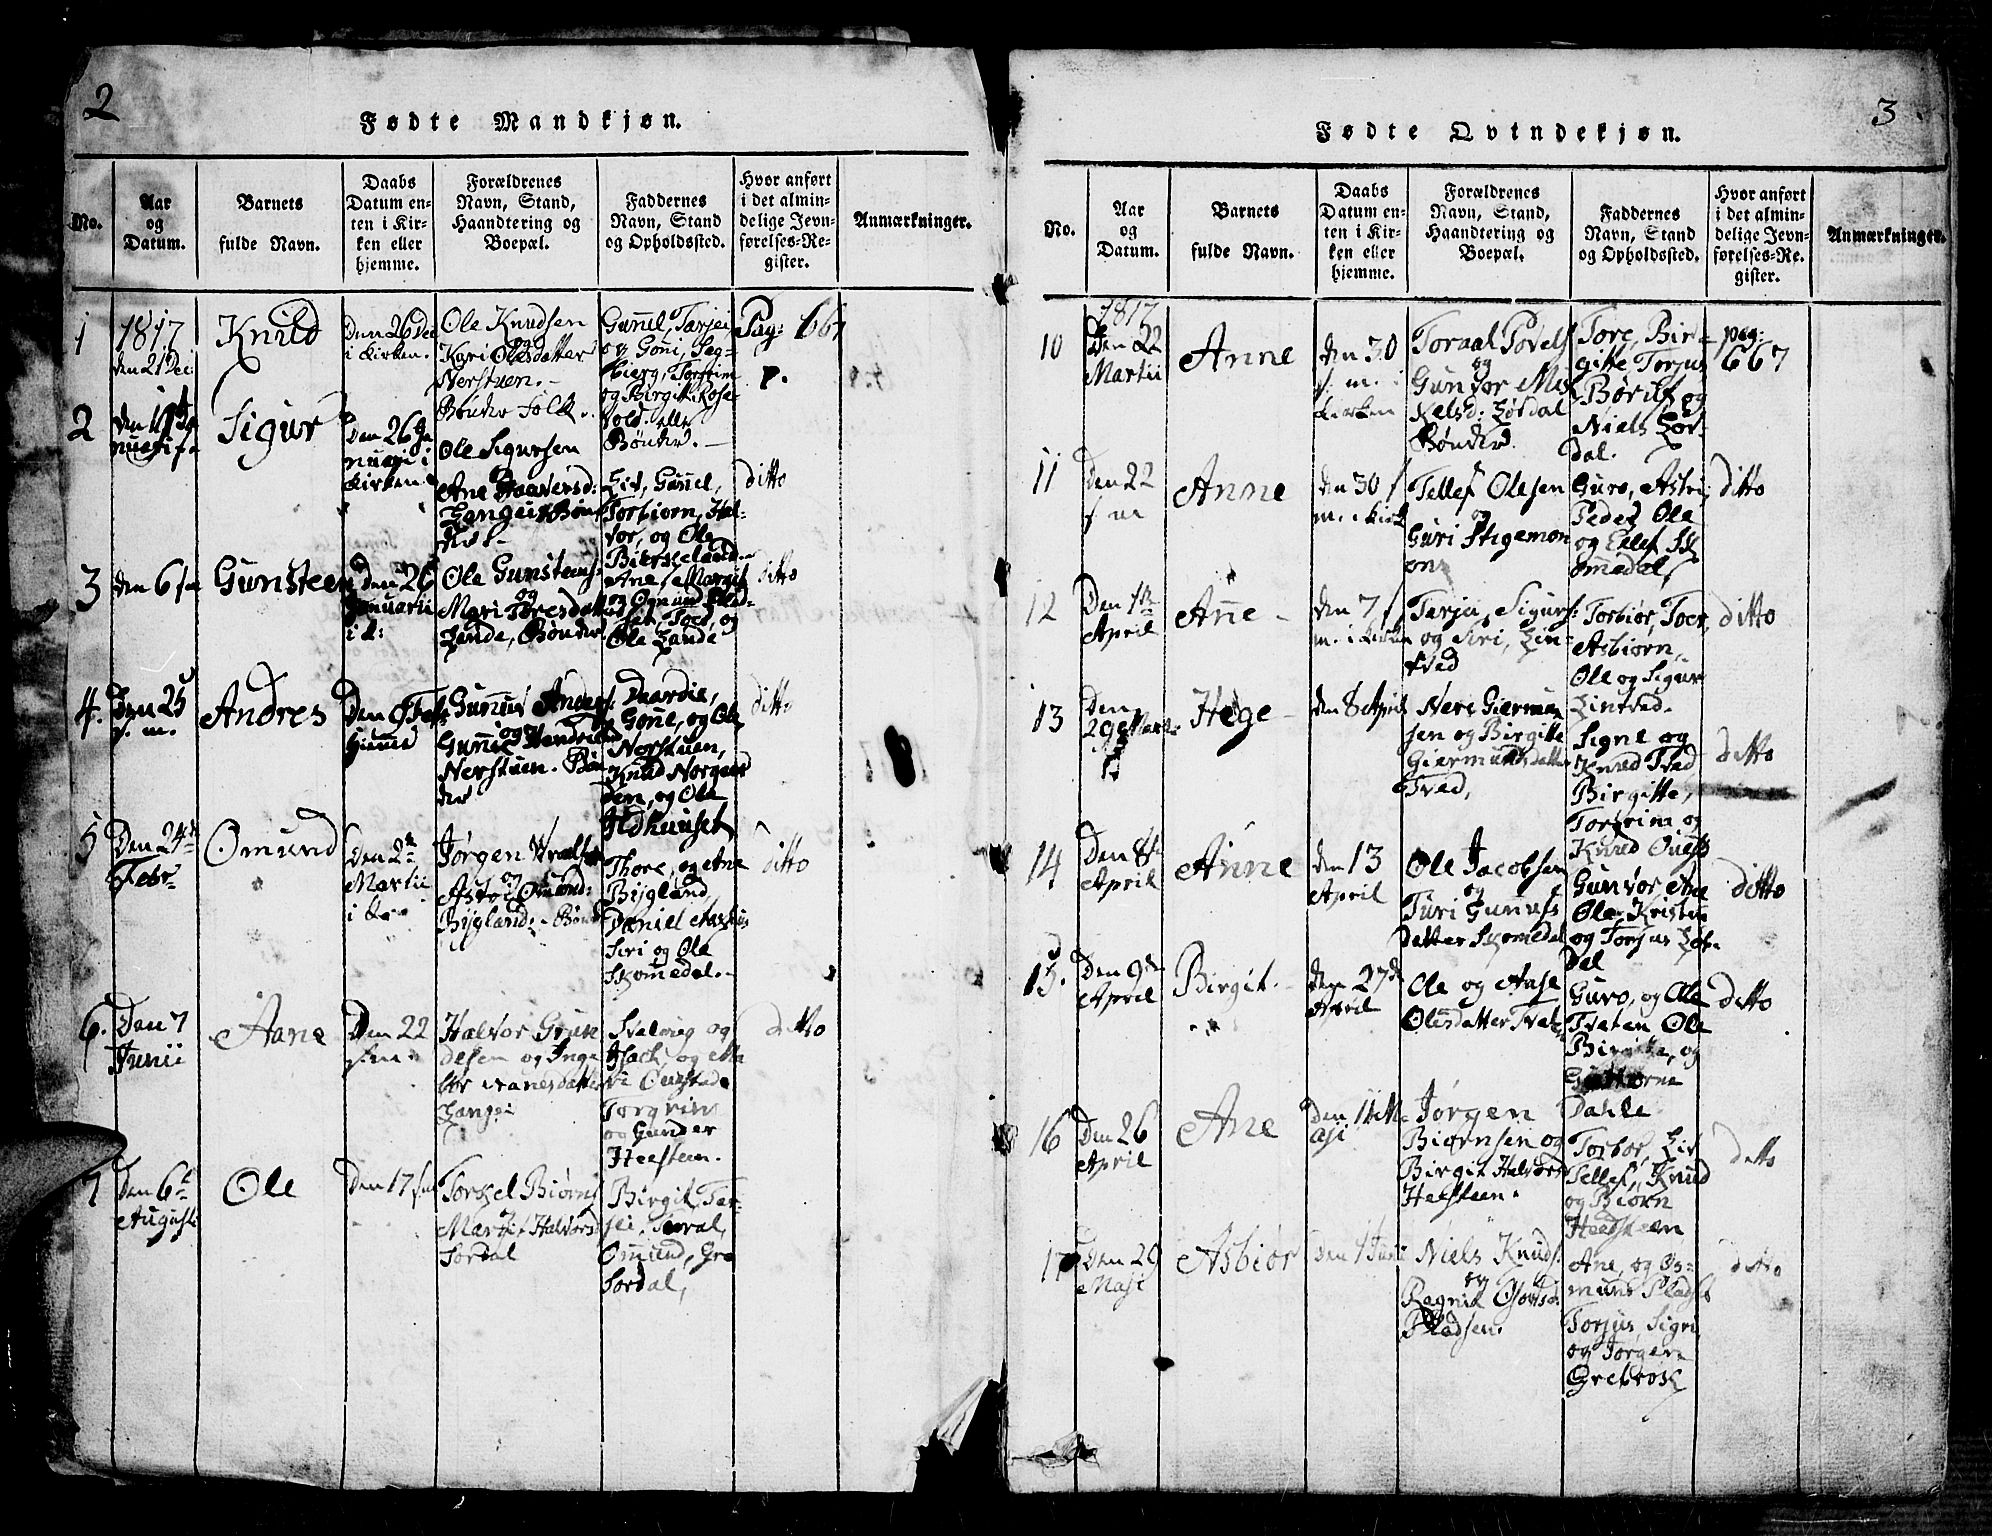 2
Fødte Mandkjøn.
No.
Aar
og
Datum.
Barnets
fulde Navn.
Daabs
Datum en-
ten i Kir-
ken eller
hjemme.
Forældrenes
Navn, Stand,
Haandtering og
Boepæl.
Faddernes
Navn, Stand
og Opholdssted.
Hvor anført
i det almin-
delige Jevn-
førelses-Re-
gister.
Anmærkninger.
1
1817
den 21 Dec
Knud
Den 26 Dec
i Kirken.
Ole Knudsen
og
Kari Olesdatter
Nerstuen.
Bønder Folk
Gunnel, Tarjei,
og Goni, Sag-
bierg, Torgrim
og Birgit, Rose-
vold. alle
Bønder.
Pag: 667
2
Sigur
Den 26 Ja
nuari i
Kirken
Ole Sigursen
og
Ane Haaversd:
Langei Bøn
Liv, Gunnel,
Torbiørn, Hal-
vor, og Ole
ditto
3
Den 6
Gunsteen
Den 26
Januarii
i K:
Ole Gunstens:
og
Mari Toresdatt
Lande, Bønder
Ane, Margit
og Ognund Flad-
set, Toer, og
Ole Lande
ditto
4.
Den 25
f. m.
Andres
Den 9 Feb:
hieme
Gunnuf Anders:
og
Nerstuen. Bøn
der
Gone, og Ole
Nerstuen,
Knud Norgaar
den, og Ole
ditto
5
Den 24de
Febr
Omund
Den 2de
Martii
i K
Jørgen
og
Astri Omond:
Bygland: Bønd
Thore, og Ane
Bygland,
Daniel
Siri og Ole
Skomedal.
ditto
6.
Den 7
Junii
Aane
Den 22
f. m.
Halvor Gun
dersen og Inge
bor Aanesdatter
Langei
Torgrim
og Gunder
Heesteen.
ditto
7
Den 6te
Augusti
Ole
Den 17 f m
Torkel Biørns
Margit Halvorsd
Sordal
Birgit, Tar-
jei, Toral,
Omund, Gro
Sordal,
3
Fødte Qvindekjøn.
No.
Aar
og
Datum.
Barnets
fulde Navn.
Daabs
Datum en-
ten i Kir-
ken eller
hjemme.
Forældrenes
Navn, Stand,
Haandtering og
Boepæl.
Faddernes
Navn, Stand
og Opholdssted.
Hvor anført
i det almin-
delige Jevn-
førelses-Re-
gister.
Anmærkninger.
10
1817
Den 22
Martii
Anne
den 30
f. m. i
Kirken
Toraal Povels
og
Gunvor Mi-
kelsd: Lørdal
Bønder
Tore, Bir-
gitte, Torjus
Børuf og
Niels Lør-
dal.
pag:
667
11
Den 22
f m
Anne
den 30 f
m. i Kirk
Tellef Olesen
og
Guri Stigemon
Guro, Astri,
Peder, Ole
og Ellef Sk
omedal,
ditto
12
Den 1te
April
Ane
den 7 f
m. i Kirken
Tarjei, Sigurs:
og Siri, Lin-
tved
Torbiør, Toer,
Asbiørn,
Ole og Sigur
Lintved.
ditto
13
Den
29 Marti
Hege
den 8 April
Nere Giermun
sen og Birgitte
Giermundsdatter
Tved,
Signe og
Knud Tved
Birgitte,
Torgrim og
Knud
ditto
14
Den 8de
April
Anne
den 13
April
Ole Jacobsen
og
Turi Gunufs
datter Skomedal
Gunvor Ane
Ole, Kristen
og Torjus Lør-
dal
ditto
15.
Den 9de
April
Birgit.
den 27de
April
Ole og Aase
Olesdatter Tvet
Guro, og Ole
Tveten Ole
Birgitte, og
Dahle
ditto
16
Den 26
April
Ane
Den 11te M
aji
Jørgen
Biørnsen og
Birgit Halvors
Heesteen.
Torbor, Liv
Tellef, Knud
og Biørn
Heedsteen
ditto
17
Den 29
Maji
Asbiør
den 1 Juni
Niels Knuds:
og
Ragnil
Pladsen.
Ane, og Os-
mund Pladset
Torjus, Sigri
og Jørgen
Grebrok
ditto